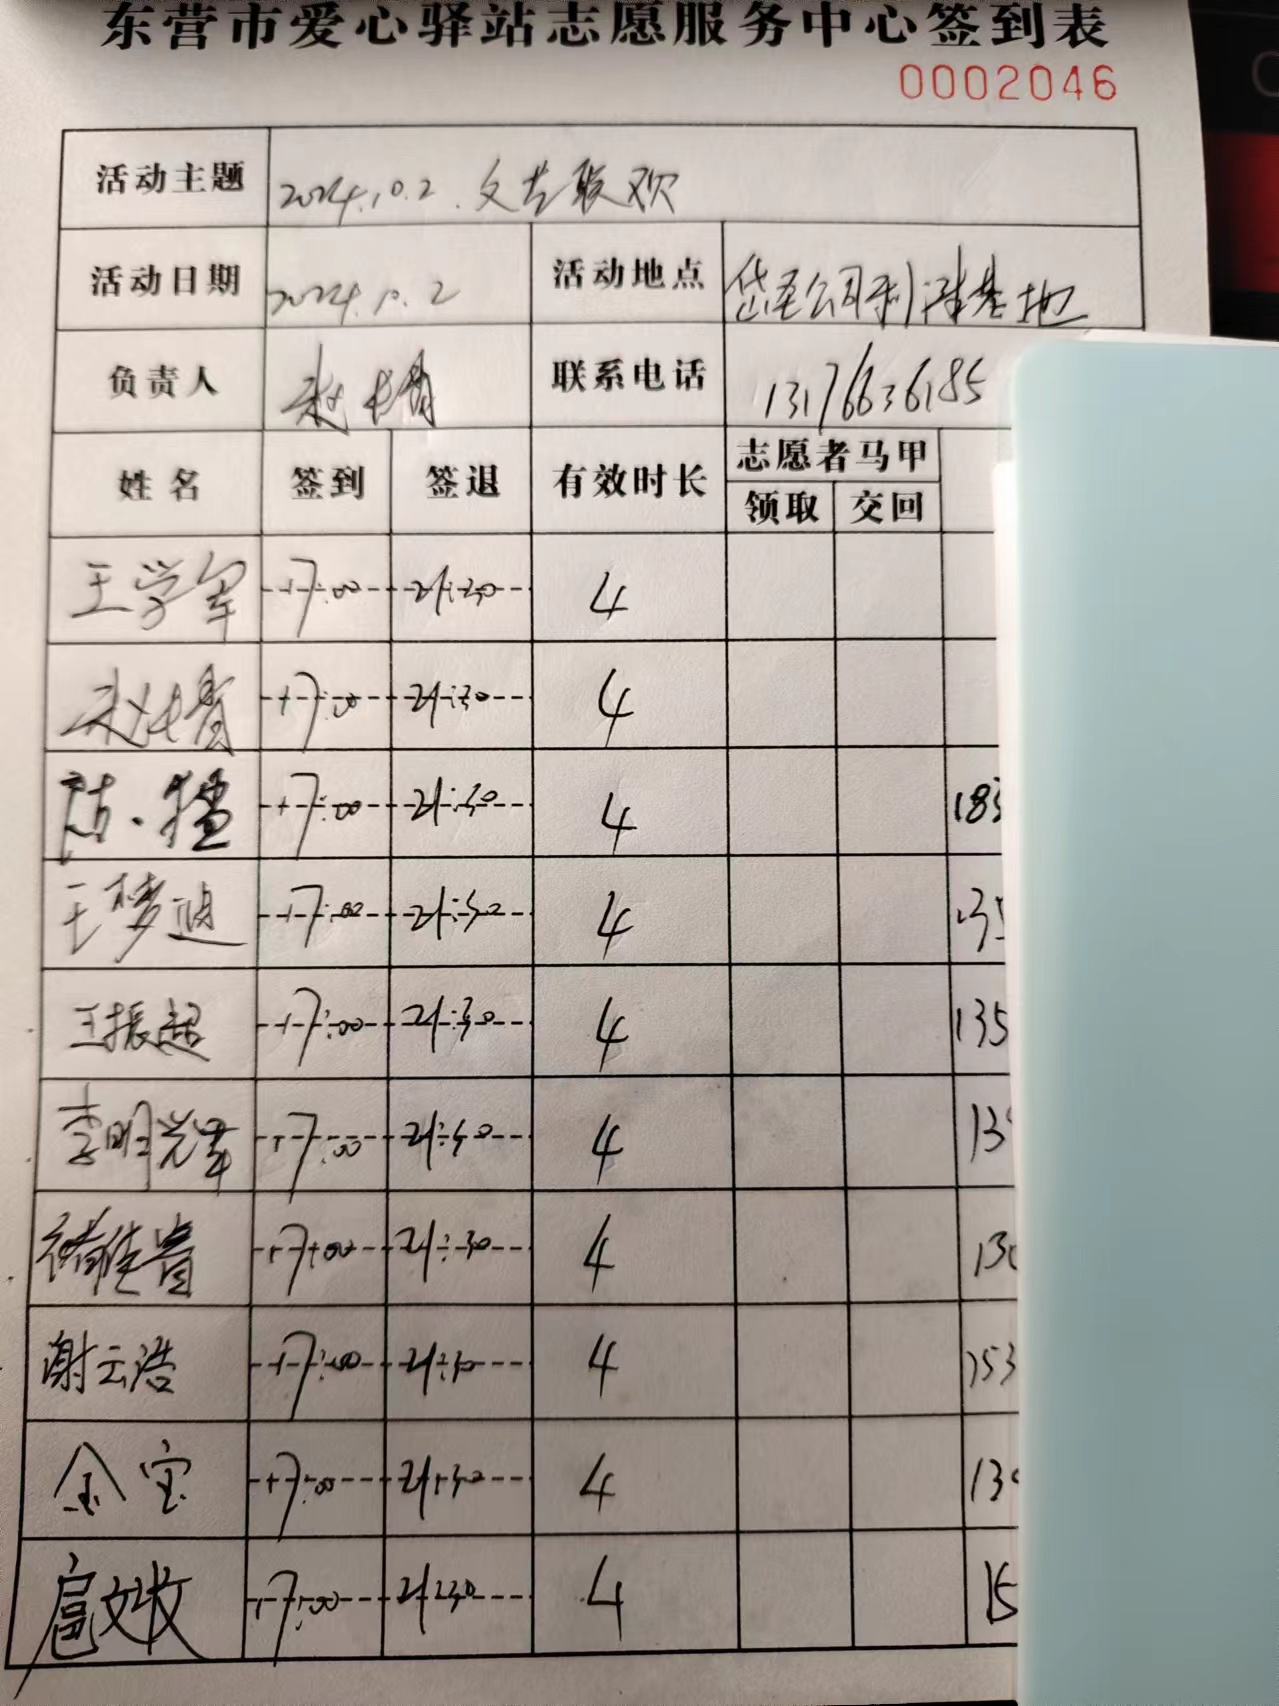 东营市爱心驿站志愿服务中心签到表
0002046
活动主题 2024.10.2.文艺联欢
活动日期 2024.10.2 活动地点 岱圣公司利津基地
负责人 联系电话 13176636185
姓名 签到 签退 有效时长 志愿者马甲
领取 交回
王学军 17:00 21:30 4
17:00 21:30 4
17:00 21:30 4 183
王梦迪 17:00 21:30 4 135
王振超 17:00 21:30 4 135
李明光军 17:00 21:30 4 13
17:00 21:30 4 130
谢云浩 17:00 21:30 4 153
金宝 17:00 21:30 4 13
扈文收 17:00 21:30 4 15